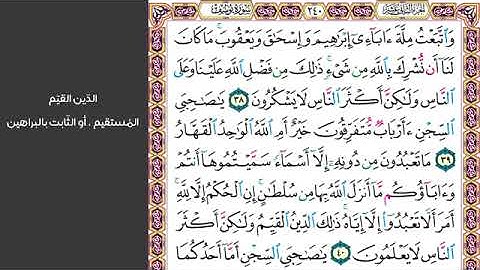 الجزء الثاني عشر
٢٤٠
سورة يوسف
وَٱتَّبَعْتُ مِلَّةَ ءَابَآءِىٓ إِبْرَٰهِيمَ وَإِسْحَٰقَ وَيَعْقُوبَ ۚ مَا كَانَ
لَنَآ أَن نُّشْرِكَ بِٱللَّهِ مِن شَىْءٍ ۚ ذَٰلِكَ مِن فَضْلِ ٱللَّهِ عَلَيْنَا وَعَلَى
ٱلنَّاسِ وَلَٰكِنَّ أَكْثَرَ ٱلنَّاسِ لَا يَشْكُرُونَ ٣٨ يَٰصَٰحِبَىِ
ٱلسِّجْنِ ءَأَرْبَابٌ مُّتَفَرِّقُونَ خَيْرٌ أَمِ ٱللَّهُ ٱلْوَٰحِدُ ٱلْقَهَّارُ
٣٩ مَا تَعْبُدُونَ مِن دُونِهِۦٓ إِلَّآ أَسْمَآءً سَمَّيْتُمُوهَآ أَنتُمْ
وَءَابَآؤُكُم مَّآ أَنزَلَ ٱللَّهُ بِهَا مِن سُلْطَٰنٍ ۚ إِنِ ٱلْحُكْمُ إِلَّا لِلَّهِ ۚ
أَمَرَ أَلَّا تَعْبُدُوٓا۟ إِلَّآ إِيَّاهُ ۚ ذَٰلِكَ ٱلدِّينُ ٱلْقَيِّمُ وَلَٰكِنَّ أَكْثَرَ
ٱلنَّاسِ لَا يَعْلَمُونَ ٤٠ يَٰصَٰحِبَىِ ٱلسِّجْنِ أَمَّآ أَحَدُكُمَا
الدّين القيّم
المُستقيم ، أو الثّابت بالبراهين